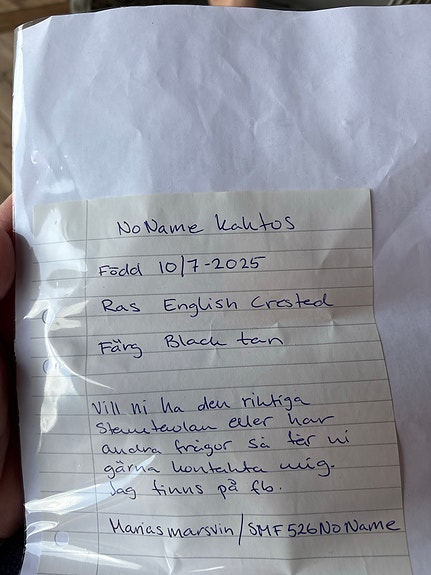 NoName kaktos
Född 10/7-2025
Ras English Crested
Färg Black tan
Vill ni ha den riktiga
stamtavlan eller har
andra frågor så får ni
gärna kontakta mig.
Jag finns på fb.
Marias marsvin/SMF526NoName